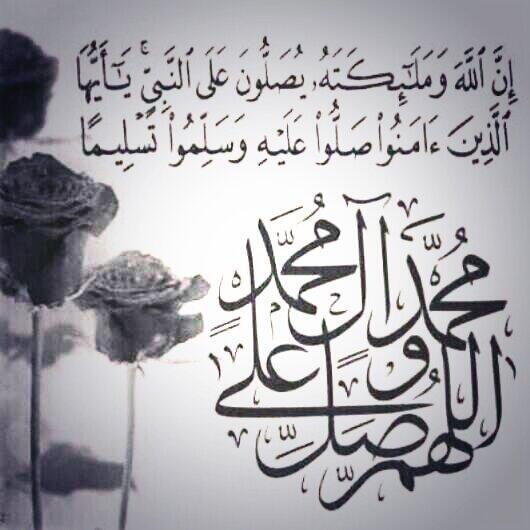 إِنَّ ٱللَّهَ وَمَلَـٰٓئِكَتَهُۥ يُصَلُّونَ عَلَى ٱلنَّبِىِّ ۚ يَـٰٓأَيُّهَا
ٱلَّذِينَ ءَامَنُوا۟ صَلُّوا۟ عَلَيْهِ وَسَلِّمُوا۟ تَسْلِيمًا
اللهم صَلِّ على محمَّد وآل محمَّد